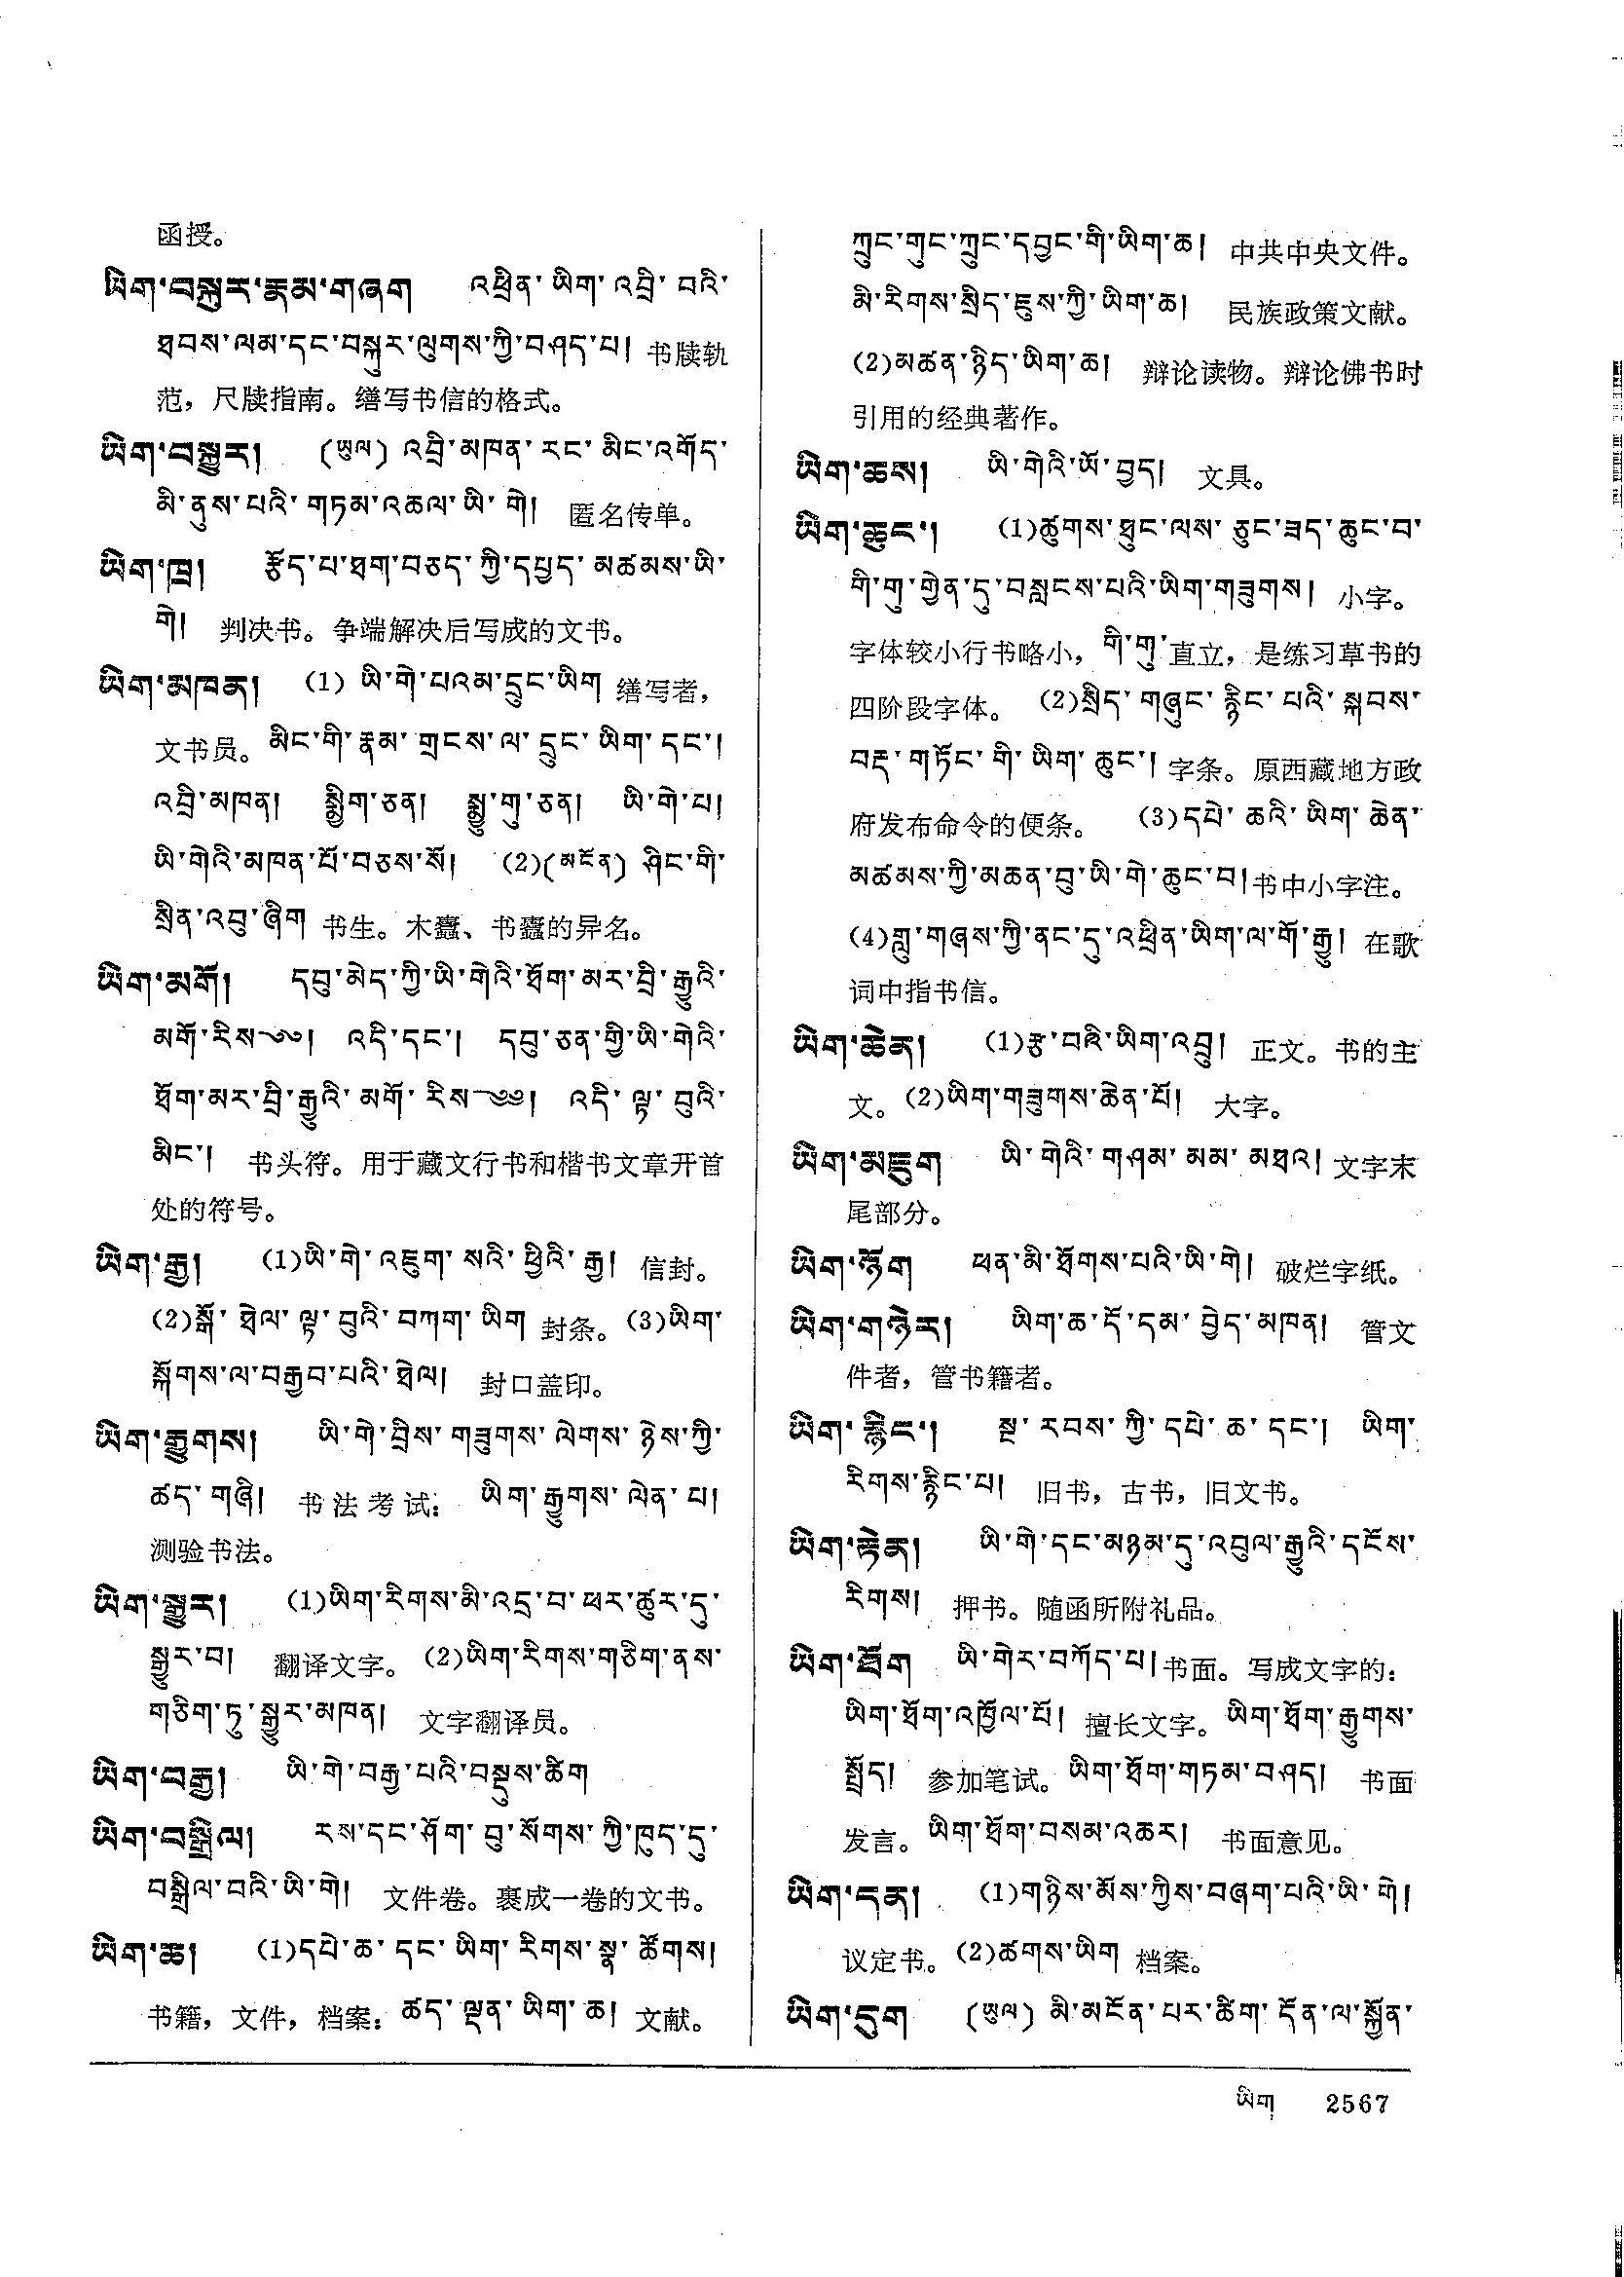 函授。
ཡིག་བསྐུར་རྣམ་གཞག འཕྲིན་ཡིག་འབྲི་བའི་
ཐབས་ལམ་དང་བསྐུར་ལུགས་ཀྱི་བཤད་པ། 书牍轨
范，尺牍指南。缮写书信的格式。
ཡིག་བསྐྱུར། (ཡུལ) འབྲི་མཁན་རང་མིང་འགོད་
མི་ནུས་པའི་གཏམ་འཆལ་ཡི་གེ། 匿名传单。
ཡིག་ཁྲ། རྩོད་པ་ཐག་བཅད་ཀྱི་དཔྱད་མཚམས་ཡི་
གེ། 判决书。争端解决后写成的文书。
ཡིག་མཁན། (1) ཡི་གེ་པའམ་དྲུང་ཡིག 缮写者，
文书员。མིང་གི་རྣམ་གྲངས་ལ་དྲུང་ཡིག་དང་།
འབྲི་མཁན། སྨྱིག་ཅན། སྨྱུ་གུ་ཅན། ཡི་གེ་པ།
ཡི་གེའི་མཁན་པོ་བཅས་སོ། (2)(མངོན) ཤིང་གི་
སྲིན་འབུ་ཞིག 书生。木蠹、书蠹的异名。
ཡིག་མགོ། དབུ་མེད་ཀྱི་ཡི་གེའི་ཐོག་མར་བྲི་རྒྱུའི་
མགོ་རིས༄། འདི་དང་། དབུ་ཅན་གྱི་ཡི་གེའི་
ཐོག་མར་བྲི་རྒྱུའི་མགོ་རིས༄༅། འདི་ལྟ་བུའི་
མིང་། 书头符。用于藏文行书和楷书文章开首
处的符号。
ཡིག་རྒྱ། (1)ཡི་གེ་འཇུག་སའི་ཕྱིའི་རྒྱ། 信封。
(2)སྒོ་ཐེལ་ལྟ་བུའི་བཀག་ཡིག 封条。(3)ཡིག་
སྐོགས་ལ་བརྒྱབ་པའི་ཐེལ། 封口盖印。
ཡིག་རྒྱུགས། ཡི་གེ་བྲིས་གཟུགས་ལེགས་ཉེས་ཀྱི་
ཚད་གཞི། 书法考试： ཡིག་རྒྱུགས་ལེན་པ།
测验书法。
ཡིག་སྒྱུར། (1)ཡིག་རིགས་མི་འདྲ་བ་ཕར་ཚུར་དུ་
སྒྱུར་བ། 翻译文字。(2)ཡིག་རིགས་གཅིག་ནས་
གཅིག་ཏུ་སྒྱུར་མཁན། 文字翻译员。
ཡིག་བརྒྱ། ཡི་གེ་བརྒྱ་པའི་བསྡུས་ཚིག
ཡིག་བསྒྲིལ། རས་དང་ཤོག་བུ་སོགས་ཀྱི་ཁུད་དུ་
བསྒྲིལ་བའི་ཡི་གེ། 文件卷。裹成一卷的文书。
ཡིག་ཆ། (1)དཔེ་ཆ་དང་ཡིག་རིགས་སྣ་ཚོགས།
书籍，文件，档案：ཚད་ལྡན་ཡིག་ཆ། 文献。
ཀྲུང་གུང་ཀྲུང་དབྱང་གི་ཡིག་ཆ། 中共中央文件。
མི་རིགས་སྲིད་ཇུས་ཀྱི་ཡིག་ཆ། 民族政策文献。
(2)མཚན་ཉིད་ཡིག་ཆ། 辩论读物。辩论佛书时
引用的经典著作。
ཡིག་ཆས། ཡི་གེའི་ཡོ་བྱད། 文具。
ཡིག་ཆུང་། (1)ཚུགས་ཐུང་ལས་ཅུང་ཟད་ཆུང་བ་
གི་གུ་གྱེན་དུ་བསླངས་པའི་ཡིག་གཟུགས། 小字。
字体较小行书略小，གི་གུ་直立，是练习草书的
四阶段字体。 (2)སྲིད་གཞུང་རྙིང་པའི་སྐབས་
བརྡ་གཏོང་གི་ཡིག་ཆུང་། 字条。原西藏地方政
府发布命令的便条。 (3)དཔེ་ཆའི་ཡིག་ཆེན་
མཚམས་ཀྱི་མཆན་བུ་ཡི་གེ་ཆུང་བ། 书中小字注。
(4)གླུ་གཞས་ཀྱི་ནང་དུ་འཕྲིན་ཡིག་ལ་གོ་རྒྱུ། 在歌
词中指书信。
ཡིག་ཆེན། (1)རྩ་བའི་ཡིག་འབྲུ། 正文。书的主
文。(2)ཡིག་གཟུགས་ཆེན་པོ། 大字。
ཡིག་མཇུག ཡི་གེའི་གཤམ་མམ་མཐའ། 文字末
尾部分。
ཡིག་ཉོག ཕན་མི་ཐོགས་པའི་ཡི་གེ། 破烂字纸。
ཡིག་གཉེར། ཡིག་ཆ་དོ་དམ་བྱེད་མཁན། 管文
件者，管书籍者。
ཡིག་རྙིང་། སྔ་རབས་ཀྱི་དཔེ་ཆ་དང་། ཡིག་
རིགས་རྙིང་པ། 旧书，古书，旧文书。
ཡིག་རྟེན། ཡི་གེ་དང་མཉམ་དུ་འབུལ་རྒྱུའི་དངོས་
རིགས། 押书。随函所附礼品。
ཡིག་ཐོག ཡི་གེར་བཀོད་པ། 书面。写成文字的：
ཡིག་ཐོག་འཁྱོལ་པོ། 擅长文字。ཡིག་ཐོག་རྒྱུགས་
སྤྲོད། 参加笔试。ཡིག་ཐོག་གཏམ་བཤད། 书面
发言。ཡིག་ཐོག་བསམ་འཆར། 书面意见。
ཡིག་དན། (1)གཉིས་མོས་ཀྱིས་བཞག་པའི་ཡི་གེ།
议定书。(2)ཚགས་ཡིག 档案。
ཡིག་དུག (ཡུལ) མི་མངོན་པར་ཚིག་དོན་ལ་སྐྱོན་
ཡིག 2567